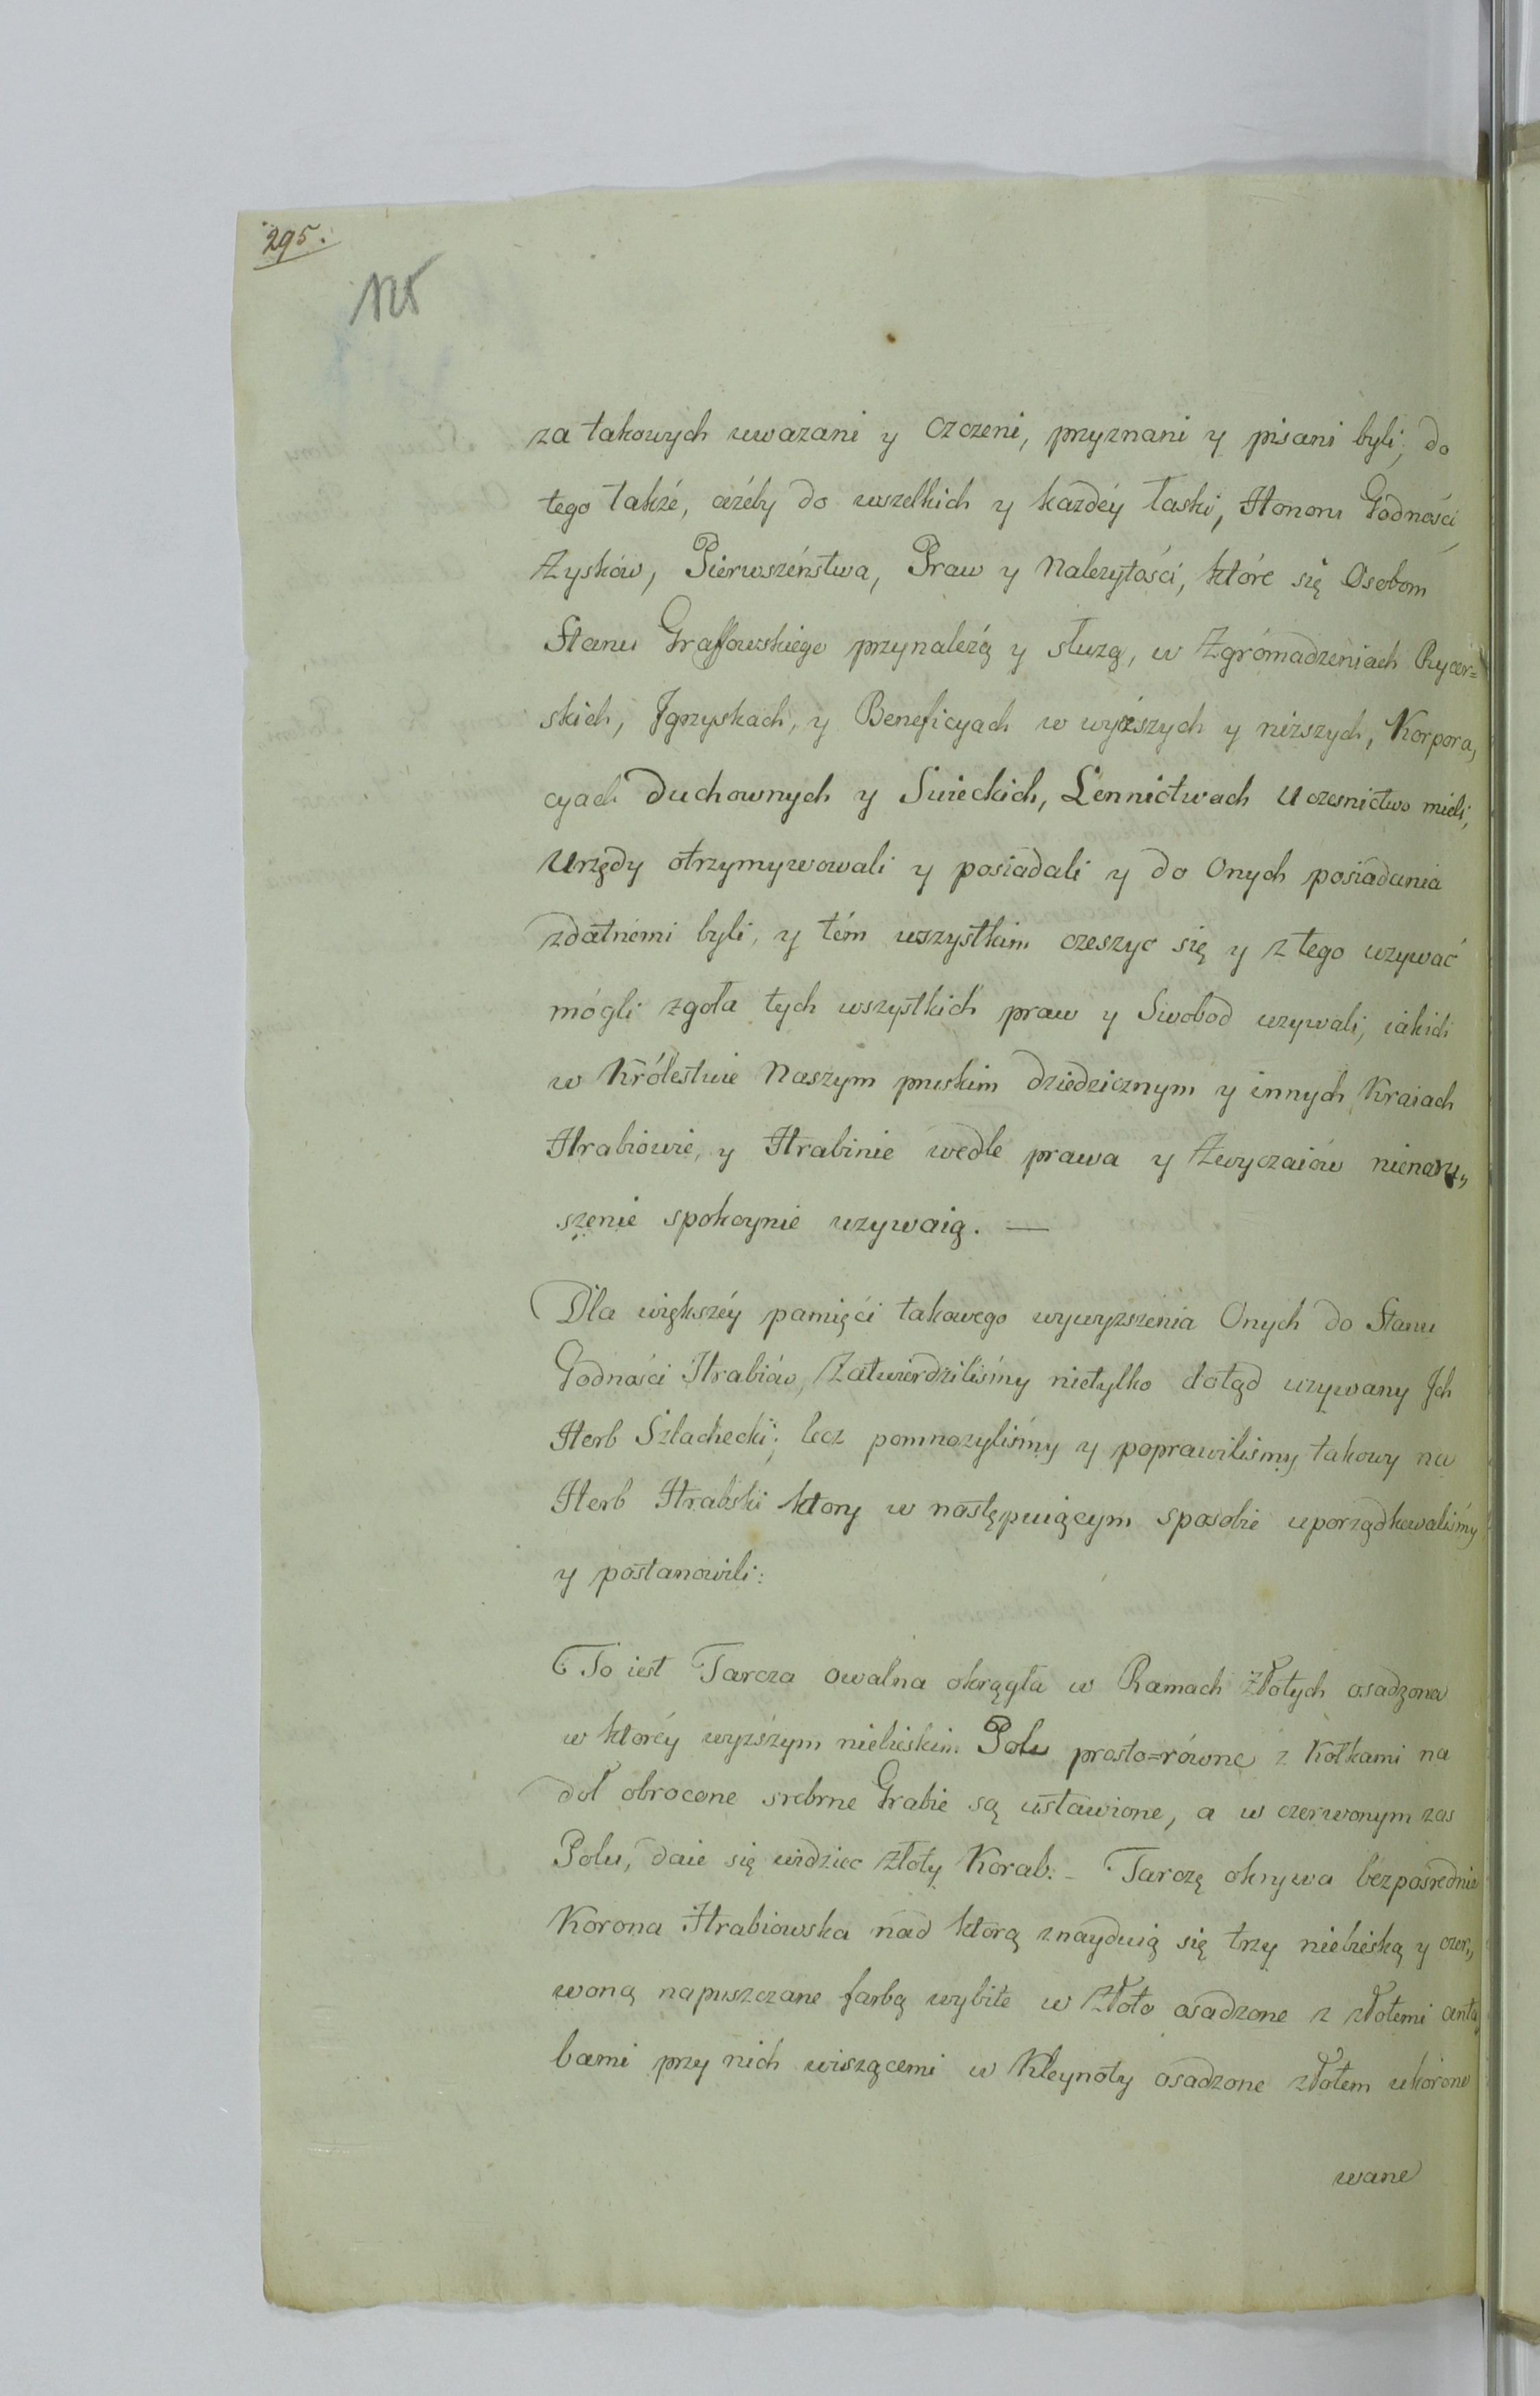 295.
za takowych uwazani y czczeni, przyznani y pisani byli; do
tego takźe, aźeby do wszelkich y kaźdéy łaski, Honoru Godności,
Zysków, Pierwszéństwa, Praw y Nalezytości, które się Osobom
Stanu Graffowskiego przynaleźą y słuzą, w Zgromadzeniach Rycer=
skich, Jgrzyskach, y Beneficyach w wyźszych y niższych, Korpora,,
cyach Duchownych y Swieckich, Lennictwach Uczesnictwo mieli,
Urzędy otrzymywowali y posiadali y do Onych posiadania
zdatnemi byli, y tém wszystkim czeszyc się y z tego uzywać
mógli zgoła tych wszystkich praw y Swobod uzywali, iakich
w Królestwie Naszym pruskim dziedzicznym y innych Kraiach
Hrabiowie, y Hrabinie wedle prawa y Zwyczaiów nienaru,,
szenie spokoynie uzywaią. —
Dla większéy pamięći takowego wywyzszenia Onych do Stanu
Godności Hrabiów, Zatwierdziliśmy nietylko dotąd uzywany Jch
Herb Szlachecki; lecz pomnozyliśmy y poprawiliśmy takowy na
Herb Hrabski ktory w następuiącym sposobie uporządkowaliśmy
y postanowili:
To iest Tarcza owalna okrągła w Ramach złotych osadzona
w któréy wyzszym niebieskim Polu prosto=równe z Kołkami na
doł obrocone srebrne Grabie są ustawione, a w czerwonym zas
Polu, daie się widziec złoty Korab. - Tarczę okrywa bezpośrednie
Korona Hrabiowska nad ktorą znayduią się trzy niebieską y czer,,
woną napuszczane farbą wybite w złoto osadzone z złotemi anta
bami przy nich wiszącemi w Kleynoty osadzone złotem ukorono
wane